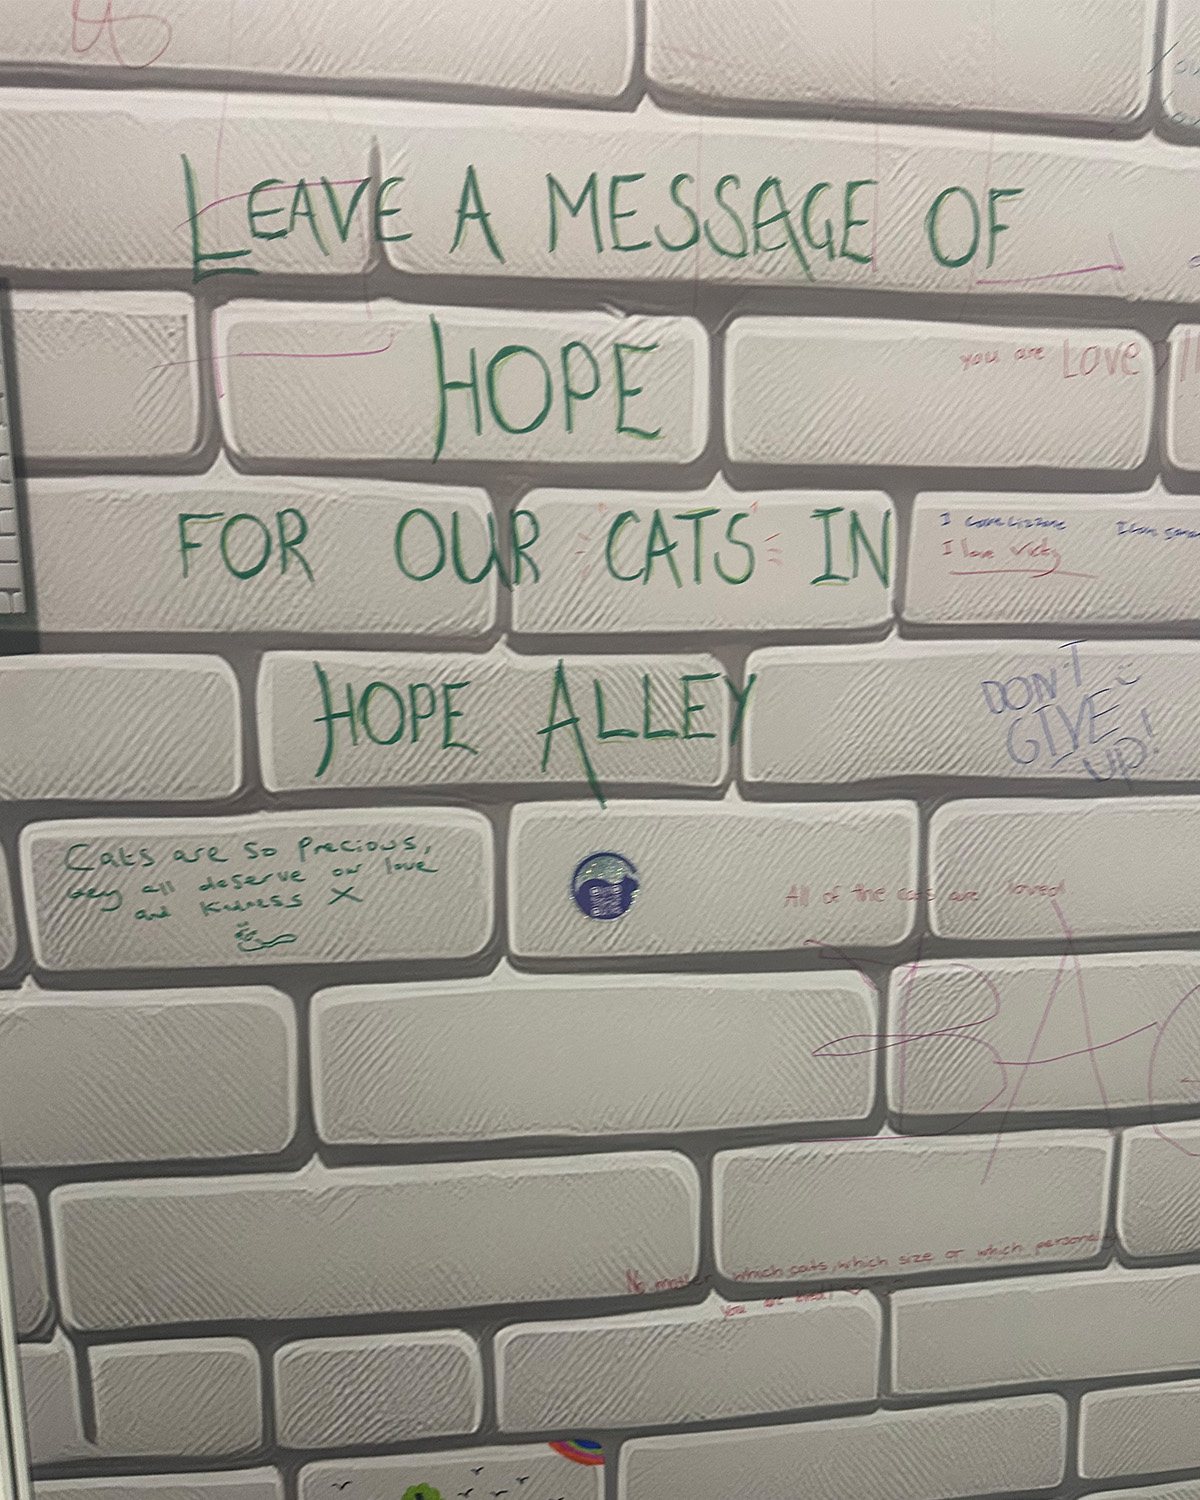 LEAVE A MESSAGE OF
HOPE
you are LOVE
FOR OUR CATS IN
I love Vicky
HOPE ALLEY
DON'T
GIVE
UP!
Cats are so precious,
they all deserve our love
and kidness X
All of the cats are loved
No matter which cats, which size or which
you are loved!